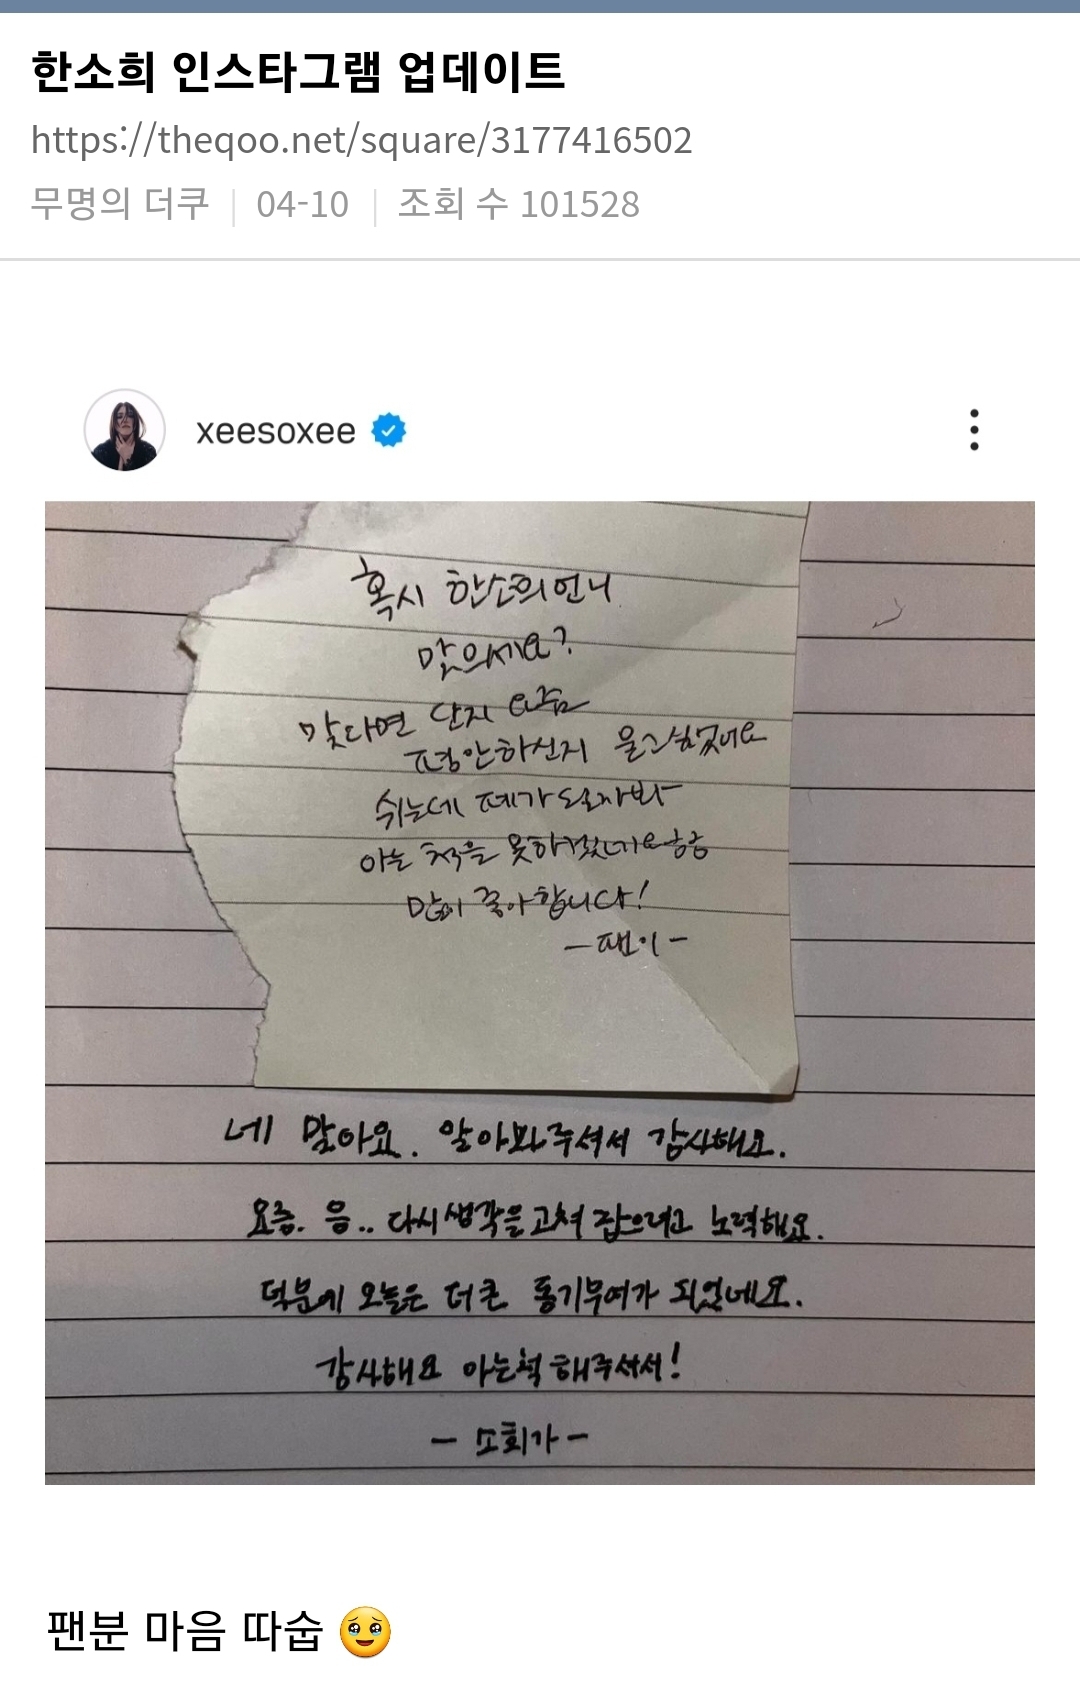 한소희 인스타그램 업데이트
https://theqoo.net/square/3177416502
무명의 더쿠 | 04-10 | 조회 수 101528
xeesoxee
혹시 한소희언니
맞으세요?
맞다면 단지 요즘
평안하신지 묻고싶었어요
쉬는데 폐가 될까봐
아는 척을 못하겠네요ㅎㅎ
많이 좋아합니다!
-팬이-
네 맞아요. 알아봐주셔서 감사해요.
요즘. 음.. 다시 생각을 고쳐 잡으려고 노력해요.
덕분에 오늘은 더 큰 동기부여가 되었네요.
감사해요 아는척 해주셔서!
- 소희가 -
팬분 마음 따숩 🥹